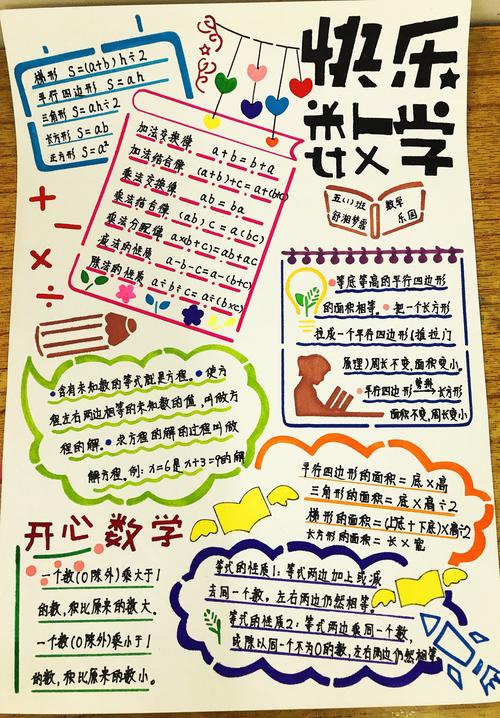 快乐
数学
梯形 S=(a+b)h÷2
平行四边形 S=ah
三角形 S=ah÷2
长方形 S=ab
正方形 S=a²
加法交换律 a+b=b+a
加法结合律 (a+b)+c=a+(b+c)
乘法交换律 ab=ba
乘法结合律 (ab)c=a(bc)
乘法分配律 a×(b+c)=ab+ac
减法的性质 a-b-c=a-(b+c)
除法的性质 a÷b÷c=a÷(b×c)
五(1)班
舒湘梦露
数学
乐园
等底等高的平行四边形
的面积相等。把一个长方形
拉成一个平行四边形(推拉门
原理)周长不变,面积变小。
平行四边形 剪拼 长方形
面积不变,周长变小
含有未知数的等式就是方程。使方
程左右两边相等的未知数的值,叫做方
程的解。求方程的解的过程叫做
解方程。例:x=6是x+3=9的解
平行四边形的面积=底×高
三角形的面积=底×高÷2
梯形的面积=(上底+下底)×高÷2
长方形的面积=长×宽
开心数学
一个数(0除外)乘大于1
的数,积比原来的数大。
一个数(0除外)乘小于1
的数,积比原来的数小。
等式的性质1:等式两边加上或减
去同一个数,左右两边仍然相等。
等式的性质2:等式两边乘同一个数,
或除以同一个不为0的数,左右两边仍然相等。